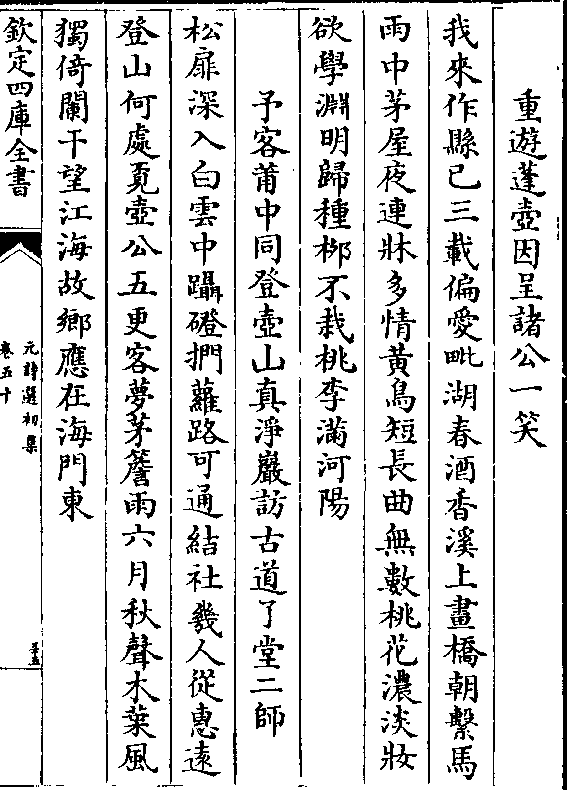 重遊蓬壺因呈諸公一笑
我來作縣已三載偏愛毗湖春酒香溪上畫橋朝繫馬
雨中茅屋夜連牀多情黃鳥短長曲無數桃花濃淡妝
欲學淵明歸種柳不栽桃李滿河陽
予客莆中同登壺山真淨巖訪古道了堂二師
松扉深入白雲中躡磴捫蘿路可通結社幾人從惠遠
登山何處覓壺公五更客夢茅簷雨六月秋聲木葉風
獨倚闌干望江海故鄉應在海門東
欽定四庫全書
元詩選初集
卷五十